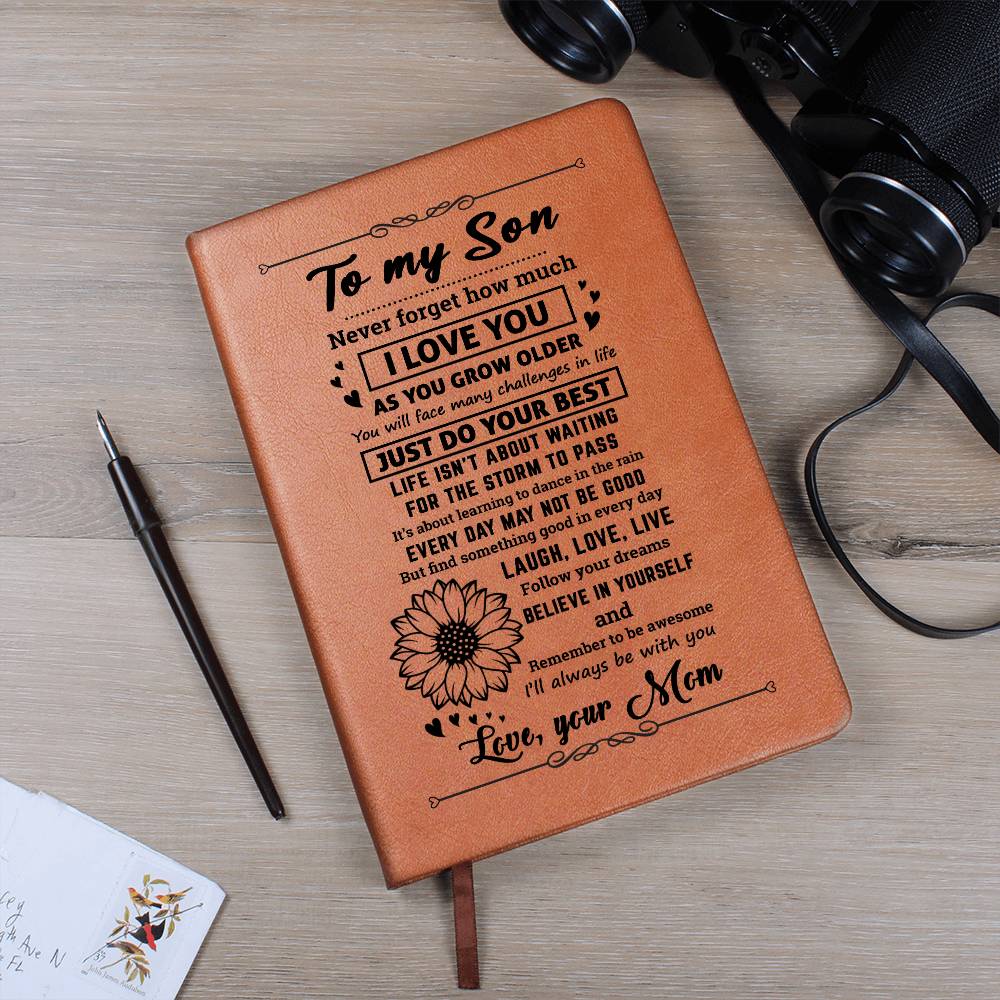 To my Son
Never forget how much
I LOVE YOU
AS YOU GROW OLDER
You will face many challenges in life
JUST DO YOUR BEST
LIFE ISN'T ABOUT WAITING
FOR THE STORM TO PASS
It's about learning to dance in the rain
EVERY DAY MAY NOT BE GOOD
But find something good in every day
LAUGH, LOVE, LIVE
Follow your dreams
BELIEVE IN YOURSELF
and
Remember to be awesome
I'll always be with you
Love, your Mom
Ave N
FL
37
John James Audubon